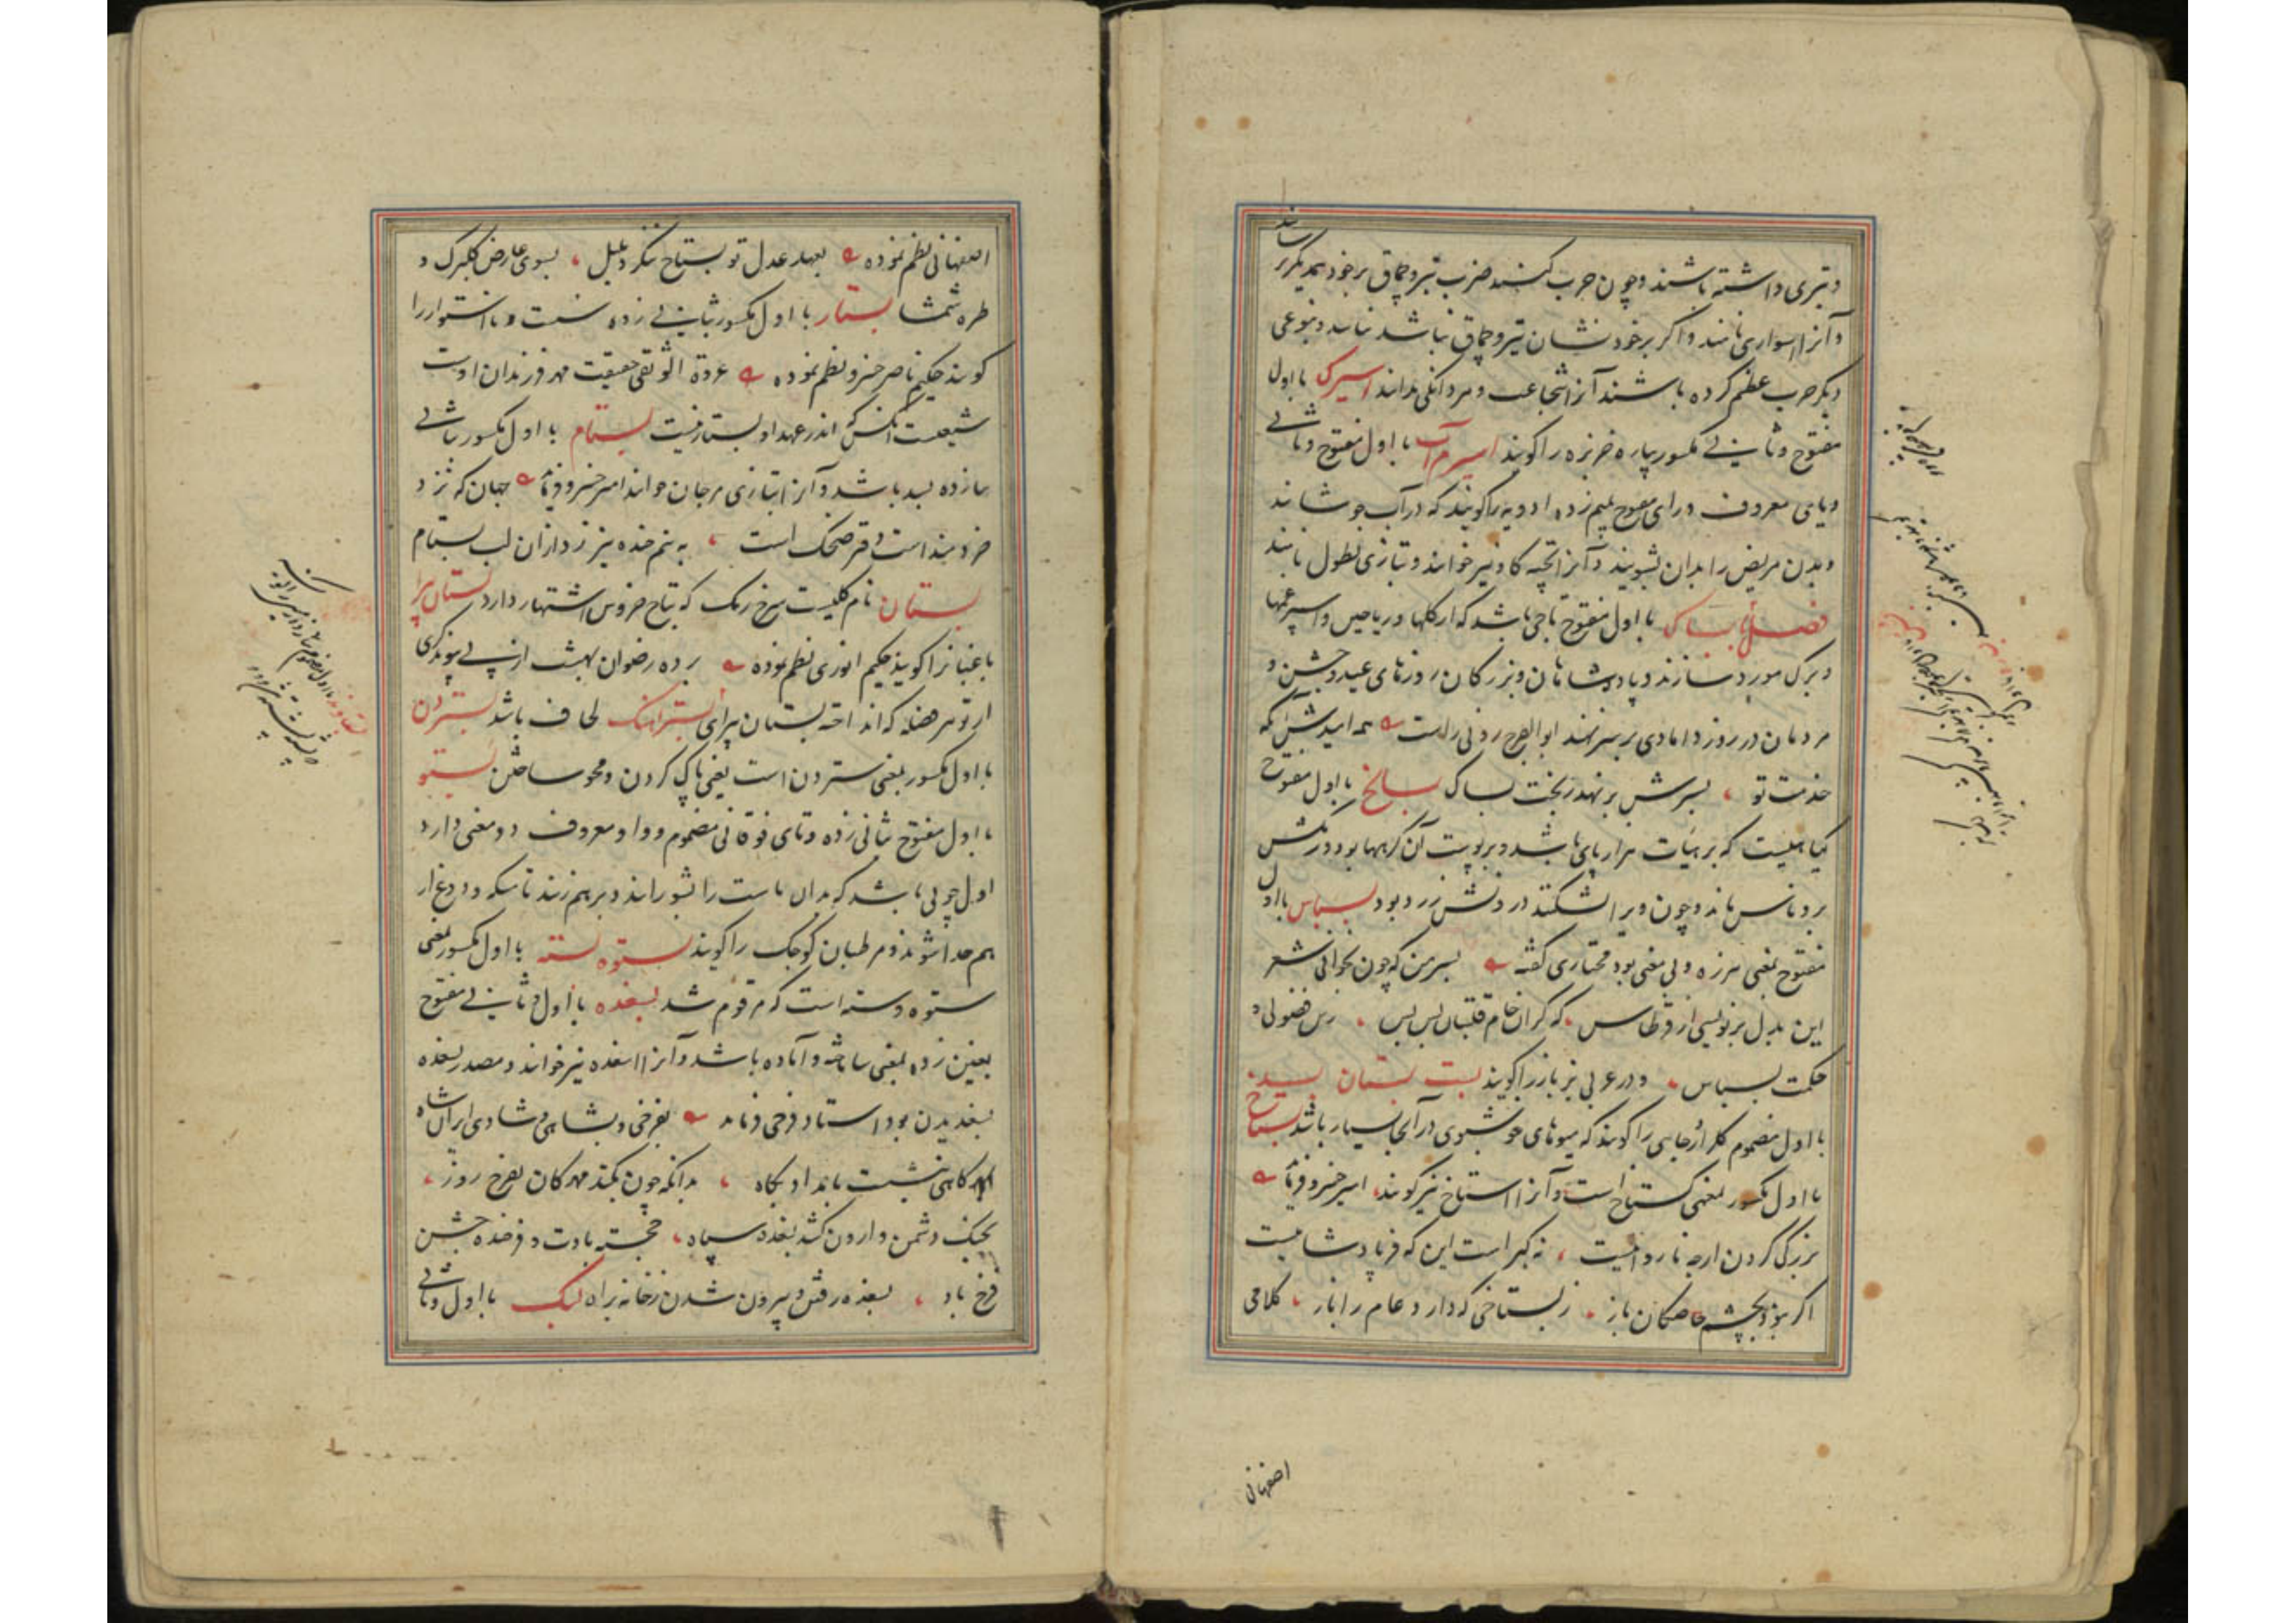 و تبری داشته باشند و چون حرب کنند ضرب تبر و چماق بر خود بر یکدیگر رسانند
و آنرا اسواری نامند و اگر بر خودشان تبر و چماق نباشد نیاسد و بنوعی
دیگر حرب عظیم کرده باشند آنرا شجاعت و مردانگی بدانند اسیرک با اول
مفتوح و ثانی مکسور پاره خربزه را گویند اسیرم آب با اول مفتوح و ثانی
و یای معروف و رای مفتوح بمیم زده ادویه را گویند که در آب جوشانند
و بدن مریض را بدان بشویند و آنرا نیز خوانند و بتازی نطول نامند
فصل با بساک با اول مفتوح تاجی باشد که از گلها و ریاحین و اسپرغمها
و برک مورد سازند و پادشاهان و بزرگان روزهای عید و جشن و
مردمان در روز دامادی بر سر نهند ابوالفرج رونی راست همه امیدش آنکه
خدمت تو بسرش بر نهد ز بخت بساک بسالخ با اول مفتوح
گیاهیست که بر هیأت هزارپای باشد و بر پوست آن گرهها بود و رنگش
ماند و چون ویرا بشکنند درونش زرد بود بسباس با اول
مفتوح بمعنی هرزه و بی معنی بود مختاری گفته بسر من که چون بخوانی شعر
این بدل بر نویسی از قرطاس که گران خام قلتبان بس بس زین فضولی و
حکمت بسباس و در عربی بزباز را گویند بست بستان
با اول مضموم گلزار و جایی را گویند که میوهای خوشبوی در آنجا بسیار باشد بستاخ
با اول مکسور بمعنی گستاخ است و آنرا استاخ نیز گویند امیر خسرو فرماید
بزرگی کردن ارچه ناروا نیست نه کبر است این که فر پادشاهیست
اگر بود بچشم خاصگان باز ز بستاخی که دارد عام را باز کلامی
اصفهانی
اصفهانی نظم نموده بعهد عدل تو بستاخ ننگرد بلبل بسوی عارض گلبرک و
طره شمشاد بستار با اول مکسور بثانی زده سست و نااستوار را
گویند حکیم ناصر خسرو نظم نموده عروة الوثقی حقیقت مهر فرزندان اوست
شیعتست آنکس که اندر عهد او بستار نیست بستام با اول مکسور بثانی
زده بسد باشد و آنرا بتازی مرجان خوانند امیر خسرو فرماید جهان که نزد
خردمند است و قر ضحک است به نیم خنده نیرزد از آن لب بستام
بستان نام گلیست سرخ رنگ که بتاج خروس اشتهار دارد بستان پرا
باغبانرا گویند حکیم انوری نظم نموده برده رضوان بهشت از پی پیوندگری
از تو هر فضله که انداخته بستان پیرای بستر آهنگ لحاف باشد بستردن
با اول مکسور بمعنی ستردن است یعنی پاک کردن و محو ساختن بستو
با اول مفتوح بثانی زده و تای فوقانی مضموم و واو معروف دو معنی دارد
اول چوبی باشد که بدان ماست را بشورانند و بر هم زنند تا مسکه و دوغ از
هم جدا شوند دوم مرطبان کوچک را گویند بستوه بسته با اول مکسور بمعنی
ستوه و سته است که مرقوم شد بسغده با اول و ثانی مفتوح
بغین زده بمعنی ساخته و آماده باشد و آنرا اسغده نیز خوانند و مصدر بسغده
بسغدیدن بود استاد فرخی فرماید بفرخی و بشاهی و شادی ایران شاه
بگاهی نشست بامداد پگاه بدانکه چون بکند مهرگان بفرخ روز
بجنگ دشمن وارون کشد بسغده سپاه خجسته بادت و فرخنده جشن
فرخ باد بسغده رفتن و بیرون شدن ز خانه براه بسک با اول و ثانی